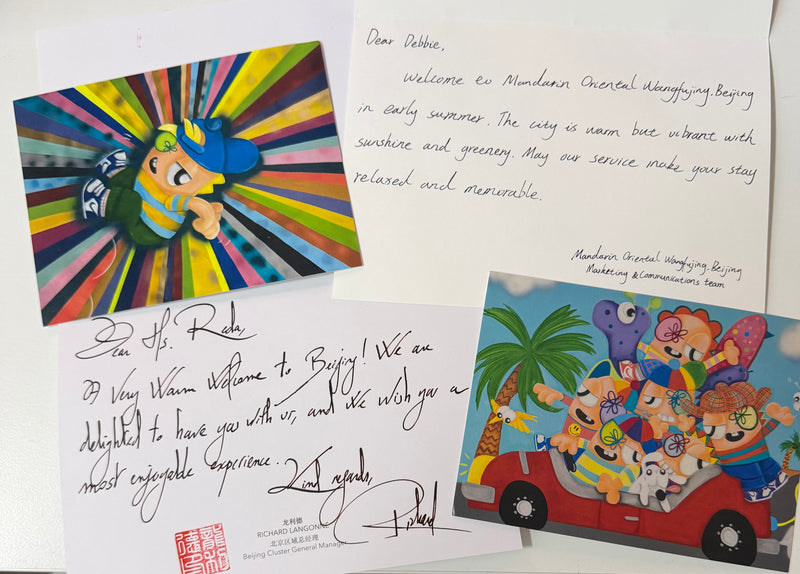 Dear Debbie,
Welcome to Mandarin Oriental Wangfujing. Beijing
in early summer. The city is warm but vibrant with
sunshine and greenery. May our service make your stay
relaxed and memorable.
Mandarin Oriental Wangfujing. Beijing
Marketing & Communications team
Dear Ms. Reda,
A Very Warm Welcome to Beijing! We are
delighted to have you with us, and we wish you a
most enjoyable experience. Kind regards,
Richard
龙利德
RICHARD LANGONNE
北京区域总经理
Beijing Cluster General Manager